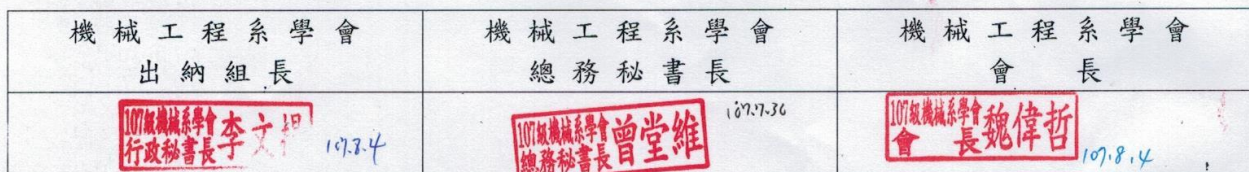 機械工程系學會
出納組長
機械工程系學會
總務秘書長
機械工程系學會
會長
107級機械系學會
行政秘書長
李文
107.8.4
107級機械系學會
總務秘書長
曾堂維
107.7.30
107級機械系學會
會長
魏偉哲
107.8.4